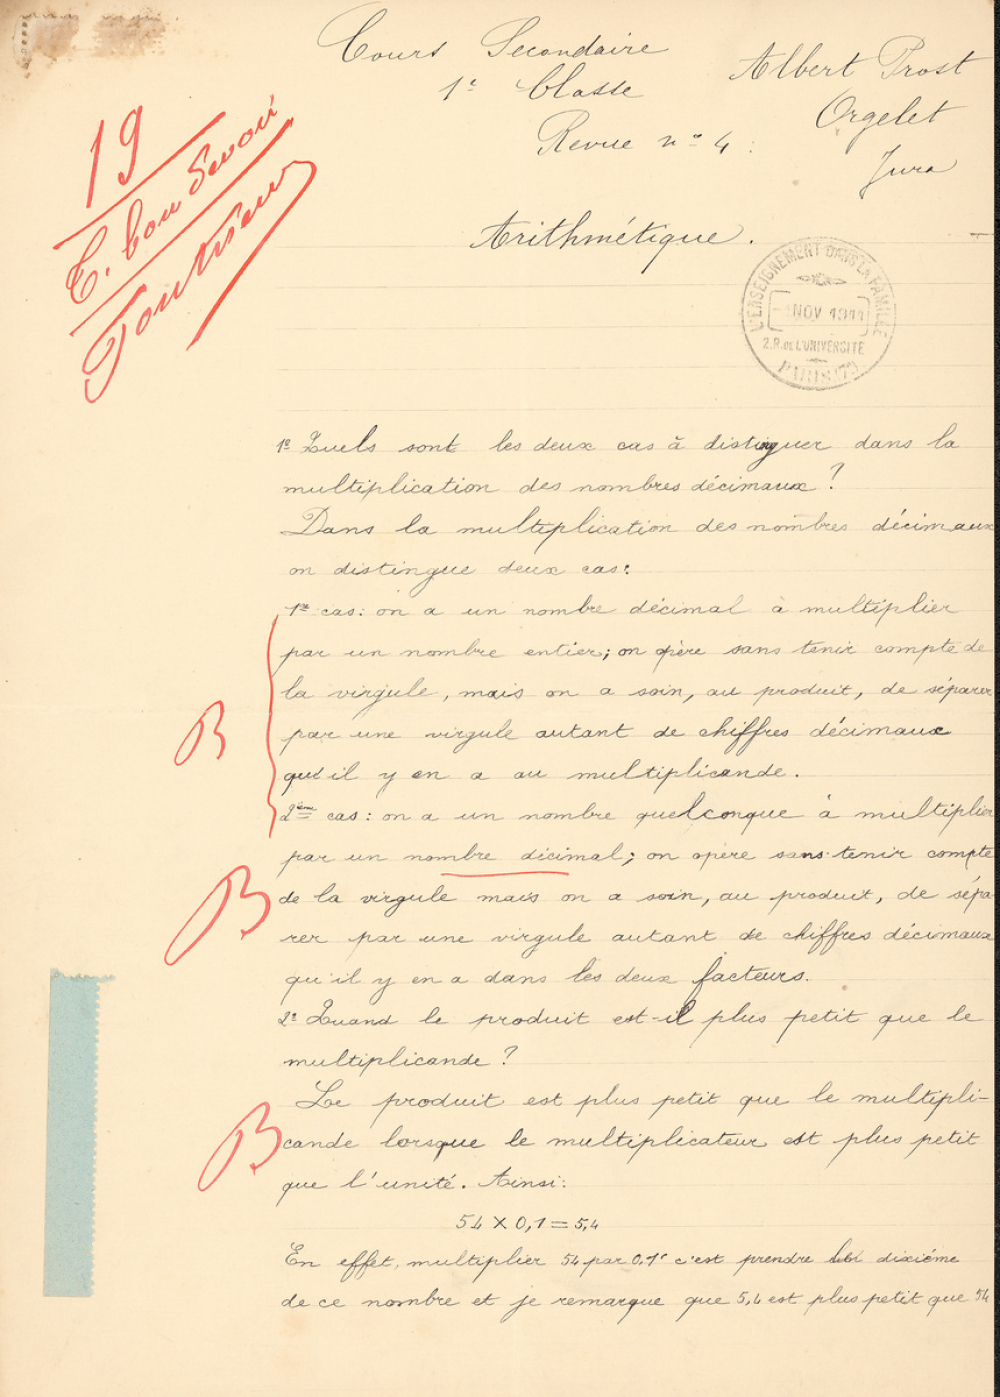 Cours Secondaire
1e Classe
Revue nº 4 :
Albert Prost
Orgelet
Jura
19
T. bon devoir
Arithmétique.
L'ENSEIGNEMENT DANS LA FAMILLE
NOV 1911
2.R.DE L'UNIVERSITÉ
PARIS (7e)
1º Quels sont les deux cas à distinguer dans la
multiplication des nombres décimaux ?
Dans la multiplication des nombres décimaux
on distingue deux cas :
1er cas : on a un nombre décimal à multiplier
par un nombre entier ; on opère sans tenir compte de
la virgule, mais on a soin, au produit, de séparer
par une virgule autant de chiffres décimaux
qu'il y en a au multiplicande.
B
2ème cas : on a un nombre quelconque à multiplier
par un nombre décimal ; on opère sans tenir compte
de la virgule mais on a soin, au produit, de sépa
rer par une virgule autant de chiffres décimaux
qu'il y en a dans les deux facteurs.
B
2º Quand le produit est-il plus petit que le
multiplicande ?
Le produit est plus petit que le multipli-
cande lorsque le multiplicateur est plus petit
que l'unité. Ainsi :
B
54 X 0,1 = 5,4
En effet, multiplier 54 par 0,1 c'est prendre dixième
de ce nombre et je remarque que 5,4 est plus petit que 54